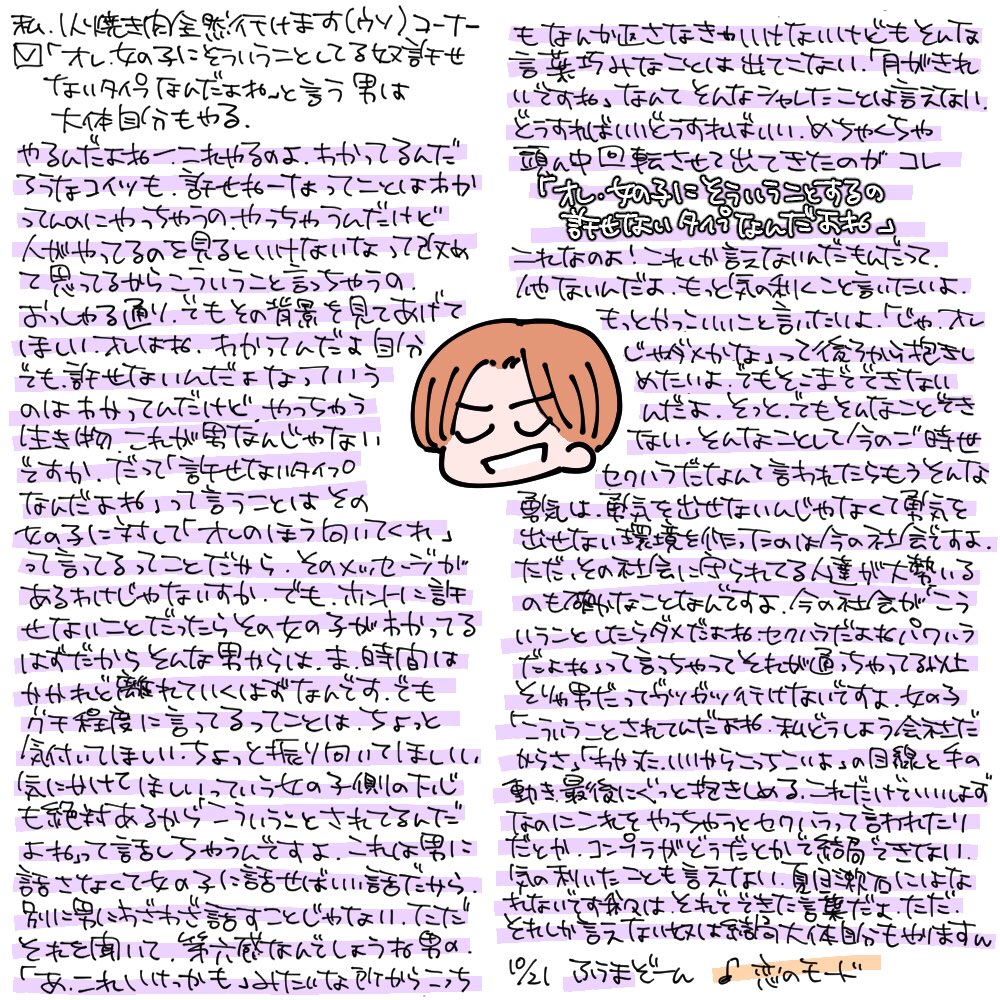 私、1人焼き肉全然行けます(ウソ)コーナー
☑「オレ、女の子にそういうことしてる奴許せ
ないタイプなんだよね~と言う男は
大体自分もやる.
やるんだよねー.これやるのよ.わかってるんだ
ろうなコイツも.許せねーなってことはわか
ってんのにやっちゃうの.やっちゃうんだけど
人がやってるのを見るといけないなって改め
て思ってるからこういうこと言っちゃうの.
おっしゃる通り.でもその背景を見てあげて
ほしい.オレはね.わかってんだよ自分
でも.許せないんだよなっていう
のはわかってんだけど.やっちゃう
生き物.これが男なんじゃない
ですか.だって「許せないタイプ
なんだよね」って言うことはその
女の子に対して「オレのほう向いてくれ」
って言ってるってことだから.そのメッセージが
あるわけじゃないすか.でも.ホントに許
せないことだったらその女の子がわかってる
はずだからそんな男からは.ま.時間は
かかれど離れていくはずなんです.でも
グチ程度に言ってるってことは.ちょっと
気付いてほしい.ちょっと振り向いてほしい.
気にかけてほしいっていう女の子側のためし
も絶対あるから「こういうことされてるんだ
よね」って話しちゃうんですよ.これは男に
話さなくて女の子に話せばいい話だから.
別に男にわざわざ話すことじゃない.ただ
それを聞いて.第六感なんでしょうね男の.
「あ.これいけるかも」みたいな所からこっち
もなんか返さなきゃいけないけどもそんな
言葉巧みなことは出てこない.「月がきれ
いですね」なんてそんなシャレたことは言えない.
どうすればいいどうすればいい.めちゃくちゃ
頭ん中回転させて出てきたのがコレ
「オレ、女の子にそういうことするの
許せないタイプなんだよね」
これなのよ!これしか言えないんだもんだって.
他ないんだよ.もっと気の利くこと言いたいよ.
もっとかっこいいこと言いたいよ.「じゃ.オレ
じゃダメかな」って後ろから抱きし
めたいよ.でもそこまでできない
んだよ.そっと.でもそんなことでき
ない.そんなことして今のご時世
セクハラだなんて言われたらもうそんな
勇気は.勇気を出せないんじゃなくて勇気を
出せない環境を作ったのは今の社会ですよ.
ただ、その社会に守られてる人達が大勢いる
のも確かなことなんですよ.今の社会が「こう
いうことしたらダメだよね.セクハラだよねパワハラ
だよね」って言っちゃってそれが通っちゃってる以上
そりゃ男だってガツガツ行けないですよ.女の子
「こういうことされてんだよね.私どうしよう会社だ
からさ」「わかった.いいからこっちこいよ」の目線と手の
動き.最後にぐっと抱きしめる.これだけでいいはず
なのにこれをやっちゃうとセクハラって言われたり
だとか.コンプラがどうだとかで結局できない.
気の利いたことも言えない.夏目漱石にはな
れないです我々は.それでできた言葉だよ.ただ.
それしか言えない奴は結局大体自分もやりますん
10/21 ふうまどーん ♪恋のモード